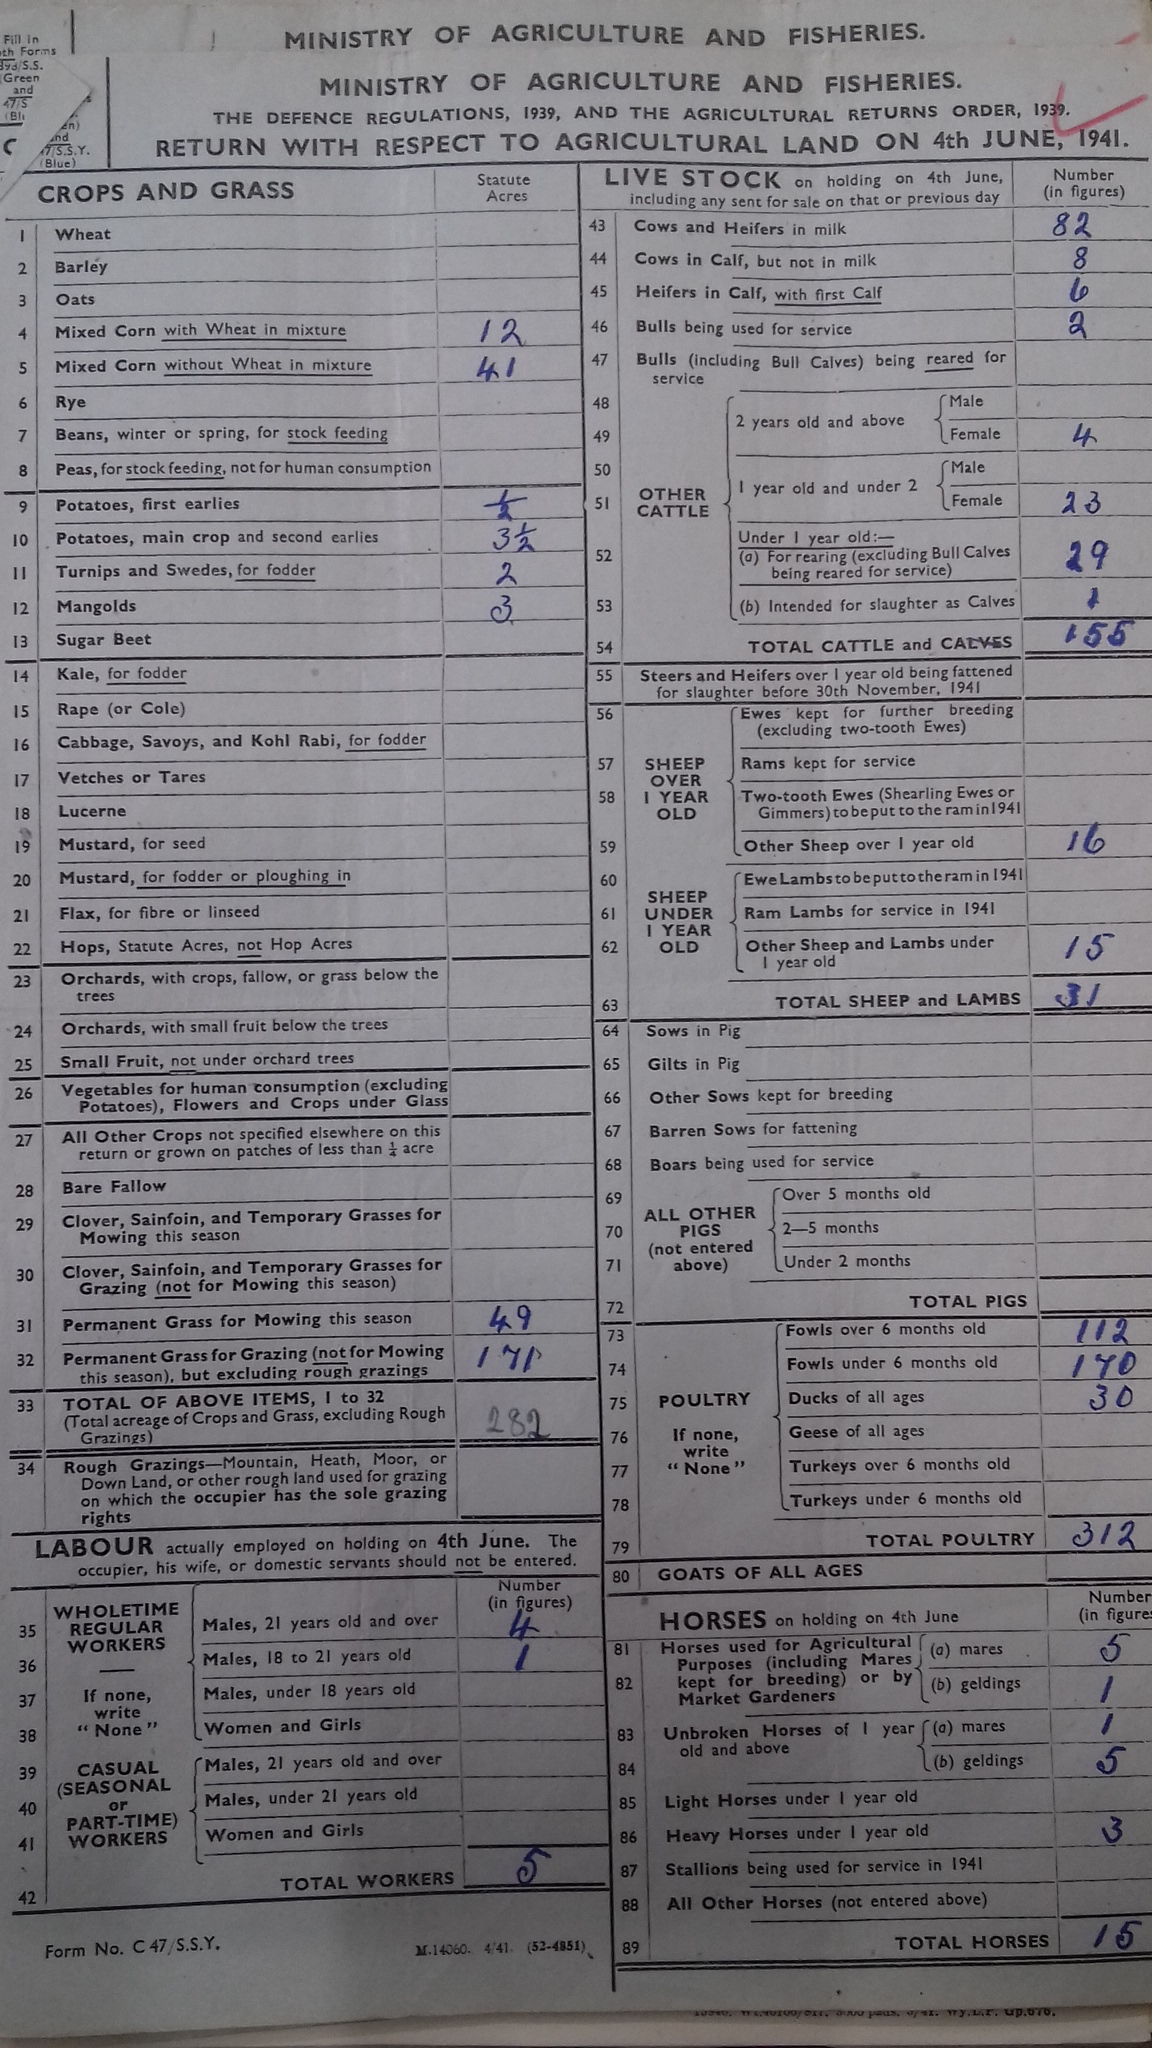 Fill In
MINISTRY OF AGRICULTURE AND FISHERIES.
MINISTRY OF AGRICULTURE AND FISHERIES.
THE DEFENCE REGULATIONS, 1939, AND THE AGRICULTURAL RETURNS ORDER, 1939.
RETURN WITH RESPECT TO AGRICULTURAL LAND ON 4th JUNE, 1941.
47/S.S.Y.
(Blue)
CROPS AND GRASS Statute Acres
1 Wheat
2 Barley
3 Oats
4 Mixed Corn with Wheat in mixture 12
5 Mixed Corn without Wheat in mixture 41
6 Rye
7 Beans, winter or spring, for stock feeding
8 Peas, for stock feeding, not for human consumption
9 Potatoes, first earlies ½
10 Potatoes, main crop and second earlies 3½
11 Turnips and Swedes, for fodder 2
12 Mangolds 3
13 Sugar Beet
14 Kale, for fodder
15 Rape (or Cole)
16 Cabbage, Savoys, and Kohl Rabi, for fodder
17 Vetches or Tares
18 Lucerne
19 Mustard, for seed
20 Mustard, for fodder or ploughing in
21 Flax, for fibre or linseed
22 Hops, Statute Acres, not Hop Acres
23 Orchards, with crops, fallow, or grass below the
trees
24 Orchards, with small fruit below the trees
25 Small Fruit, not under orchard trees
26 Vegetables for human consumption (excluding
Potatoes), Flowers and Crops under Glass
27 All Other Crops not specified elsewhere on this
return or grown on patches of less than ¼ acre
28 Bare Fallow
29 Clover, Sainfoin, and Temporary Grasses for
Mowing this season
30 Clover, Sainfoin, and Temporary Grasses for
Grazing (not for Mowing this season)
31 Permanent Grass for Mowing this season 49
32 Permanent Grass for Grazing (not for Mowing
this season), but excluding rough grazings 171
33 TOTAL OF ABOVE ITEMS, 1 to 32
(Total acreage of Crops and Grass, excluding Rough
Grazings) 282
34 Rough Grazings—Mountain, Heath, Moor, or
Down Land, or other rough land used for grazing
on which the occupier has the sole grazing
rights
LABOUR actually employed on holding on 4th June. The
occupier, his wife, or domestic servants should not be entered.
Number
(in figures)
WHOLETIME
REGULAR
WORKERS
If none,
write
"None"
35 Males, 21 years old and over 4
36 Males, 18 to 21 years old 1
37 Males, under 18 years old
38 Women and Girls
CASUAL
(SEASONAL
or
PART-TIME)
WORKERS
39 Males, 21 years old and over
40 Males, under 21 years old
41 Women and Girls
42 TOTAL WORKERS 5
Form No. C 47/S.S.Y.
M.14060. 4/41. (52-4851)
LIVE STOCK on holding on 4th June,
including any sent for sale on that or previous day
Number
(in figures)
43 Cows and Heifers in milk 82
44 Cows in Calf, but not in milk 8
45 Heifers in Calf, with first Calf 6
46 Bulls being used for service 2
47 Bulls (including Bull Calves) being reared for
service
OTHER
CATTLE
2 years old and above
48 Male
49 Female 4
1 year old and under 2
50 Male
51 Female 23
Under 1 year old:—
52 (a) For rearing (excluding Bull Calves
being reared for service) 29
53 (b) Intended for slaughter as Calves 1
54 TOTAL CATTLE and CALVES 155
55 Steers and Heifers over 1 year old being fattened
for slaughter before 30th November, 1941
SHEEP
OVER
1 YEAR
OLD
56 Ewes kept for further breeding
(excluding two-tooth Ewes)
57 Rams kept for service
58 Two-tooth Ewes (Shearling Ewes or
Gimmers) to be put to the ram in 1941
59 Other Sheep over 1 year old 16
SHEEP
UNDER
1 YEAR
OLD
60 Ewe Lambs to be put to the ram in 1941
61 Ram Lambs for service in 1941
62 Other Sheep and Lambs under
1 year old 15
63 TOTAL SHEEP and LAMBS 31
64 Sows in Pig
65 Gilts in Pig
66 Other Sows kept for breeding
67 Barren Sows for fattening
68 Boars being used for service
ALL OTHER
PIGS
(not entered
above)
69 Over 5 months old
70 2—5 months
71 Under 2 months
72 TOTAL PIGS
POULTRY
If none,
write
"None"
73 Fowls over 6 months old 112
74 Fowls under 6 months old 170
75 Ducks of all ages 30
76 Geese of all ages
77 Turkeys over 6 months old
78 Turkeys under 6 months old
79 TOTAL POULTRY 312
80 GOATS OF ALL AGES
HORSES on holding on 4th June
Number
(in figures
Horses used for Agricultural
Purposes (including Mares
kept for breeding) or by
Market Gardeners
81 (a) mares 5
82 (b) geldings 1
Unbroken Horses of 1 year
old and above
83 (a) mares 1
84 (b) geldings 5
85 Light Horses under 1 year old
86 Heavy Horses under 1 year old 3
87 Stallions being used for service in 1941
88 All Other Horses (not entered above)
89 TOTAL HORSES 15